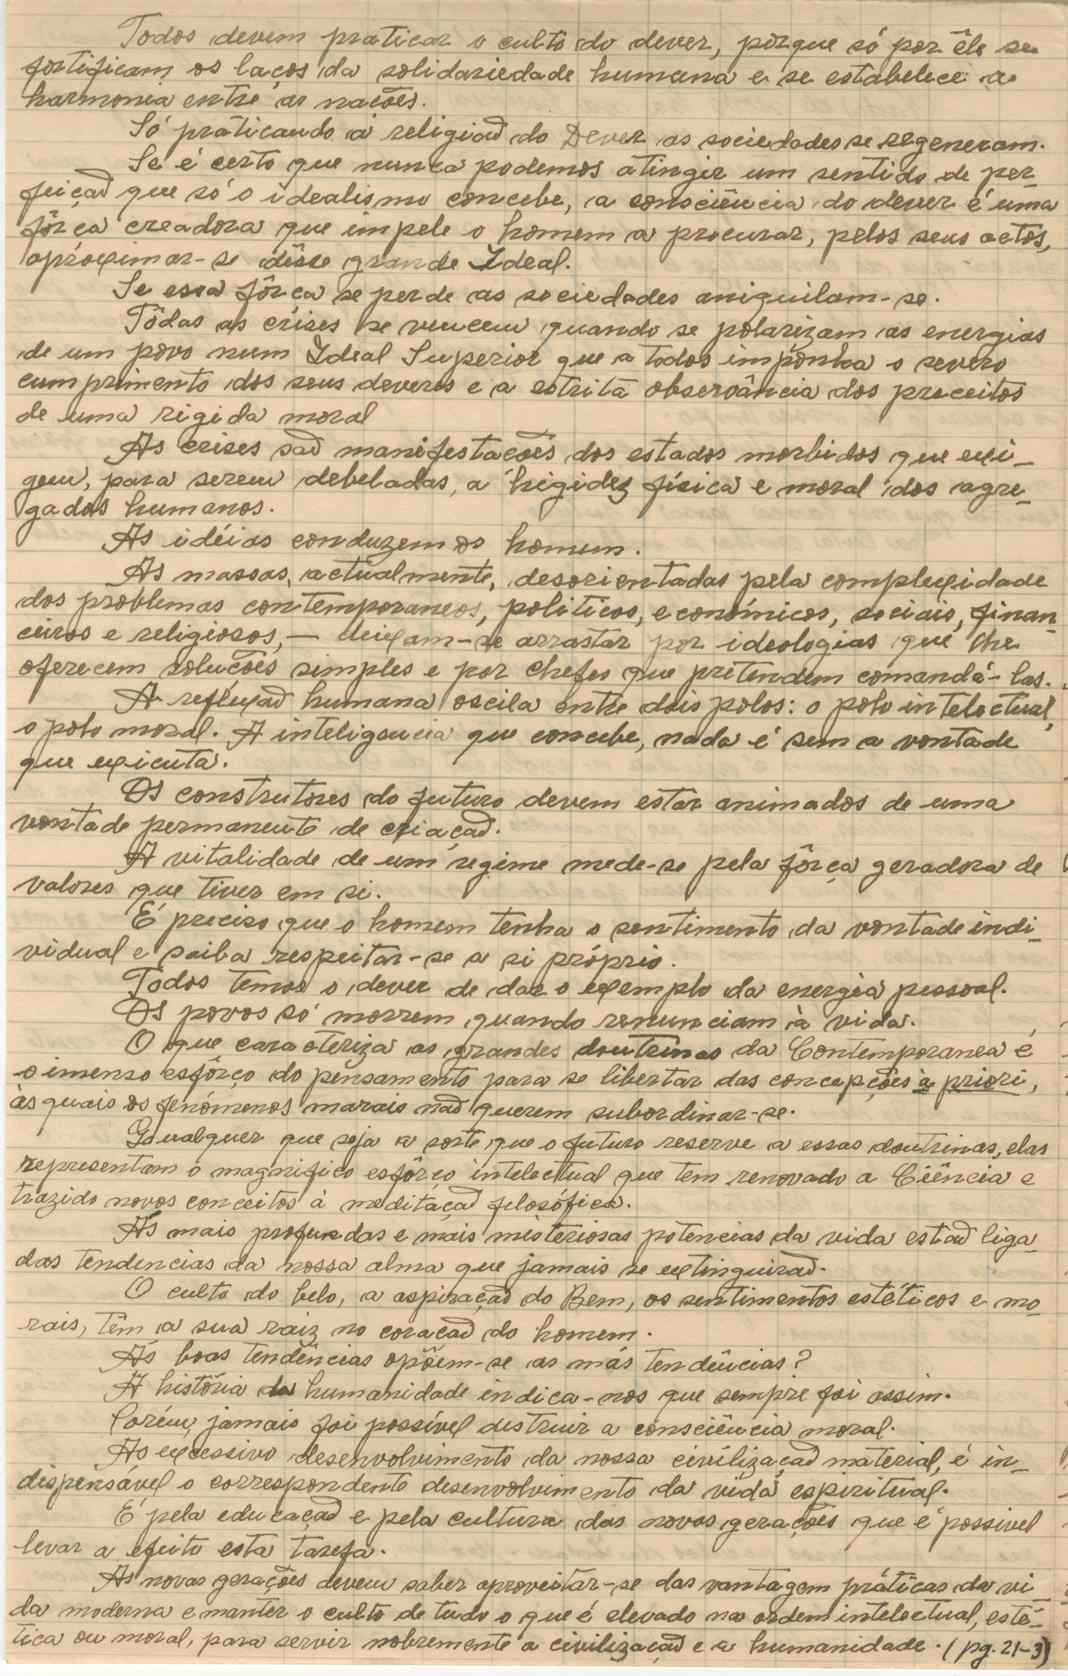 Todos devem praticar o culto do dever, porque só por êle se
fortificam os laços da solidariedade humana e se estabelece a
harmonia entre as nações.
Só praticando a religião do Dever as sociedades se regeneram.
Se é certo que nunca podemos atingir um sentido de per-
feição que só o idealismo concebe, a consciência do dever é uma
fôrça creadora que impele o homem a procurar, pelos seus actos,
aproximar-se dêsse grande Ideal.
Se essa fôrça se perde as sociedades aniquilam-se.
Tôdas as crises se vencem quando se polarizam as energias
de um povo num Ideal Superior que a todos imponha o severo
cumprimento dos seus deveres e a estrita observância dos preceitos
de uma rigida moral
As crises são manifestações dos estados morbidos que exi-
gem, para serem debeladas, a higidez física e moral dos agre-
gados humanos.
As idéias conduzem os homem.
As massas, actualmente, desorientadas pela complexidade
dos problemas contemporaneos, politicos, económicos, sociais, finan-
ceiros e religiosos, — deixam-se arrastar por ideologias que lhe
oferecem soluções simples e por chefes que pretendem comandá-las.
A reflexão humana oscila entre dois polos: o polo intelectual,
o polo moral. A inteligencia que concebe, nada é sem a vontade
que executa.
Os construtores do futuro devem estar animados de uma
vontade permanente de criação.
A vitalidade de um regime mede-se pela fôrça geradora de
valores que tiver em si.
É preciso que o homem tenha o sentimento da vontade indi-
vidual e saiba respeitar-se a si próprio.
Todos temos o dever de dar o exemplo da energia pessoal.
Os povos só morrem quando renunciam à vida.
O que caracteriza as grandes doutrinas da Contemporanea é
o imenso esfôrço do pensamento para se libertar das concepções à priori,
às quais os fenómenos marais não querem subordinar-se.
Qualquer que seja a sorte que o futuro reserve a essas doutrinas, elas
representam o magnifico esfôrço intelectual que tem renovado a Ciência e
trazido novos conceitos à meditação filosófica.
As mais profundas e mais misteriosas potencias da vida estão liga-
das tendencias da nossa alma que jamais se extinguirão.
O culto do belo, a aspiração do Bem, os sentimentos estéticos e mo-
rais, têm a sua raiz no coração do homem.
Ás boas tendências opõem-se as más tendências?
A história da humanidade indica-nos que sempre foi assim.
Porém, jamais foi possível destruir a consciência moral.
Ao excessivo desenvolvimento da nossa civilização material, é in-
dispensável o correspondente desenvolvimento da vida espiritual.
É pela educação e pela cultura das novas gerações que é possivel
levar a efeito esta tarefa.
As novas gerações devem saber aproveitar-se das vantagem práticas da vi-
da moderna e manter o culto de tudo o que é elevado na ordem intelectual, esté-
tica ou moral, para servir nobremente a civilização e a humanidade. (pg. 21-3)